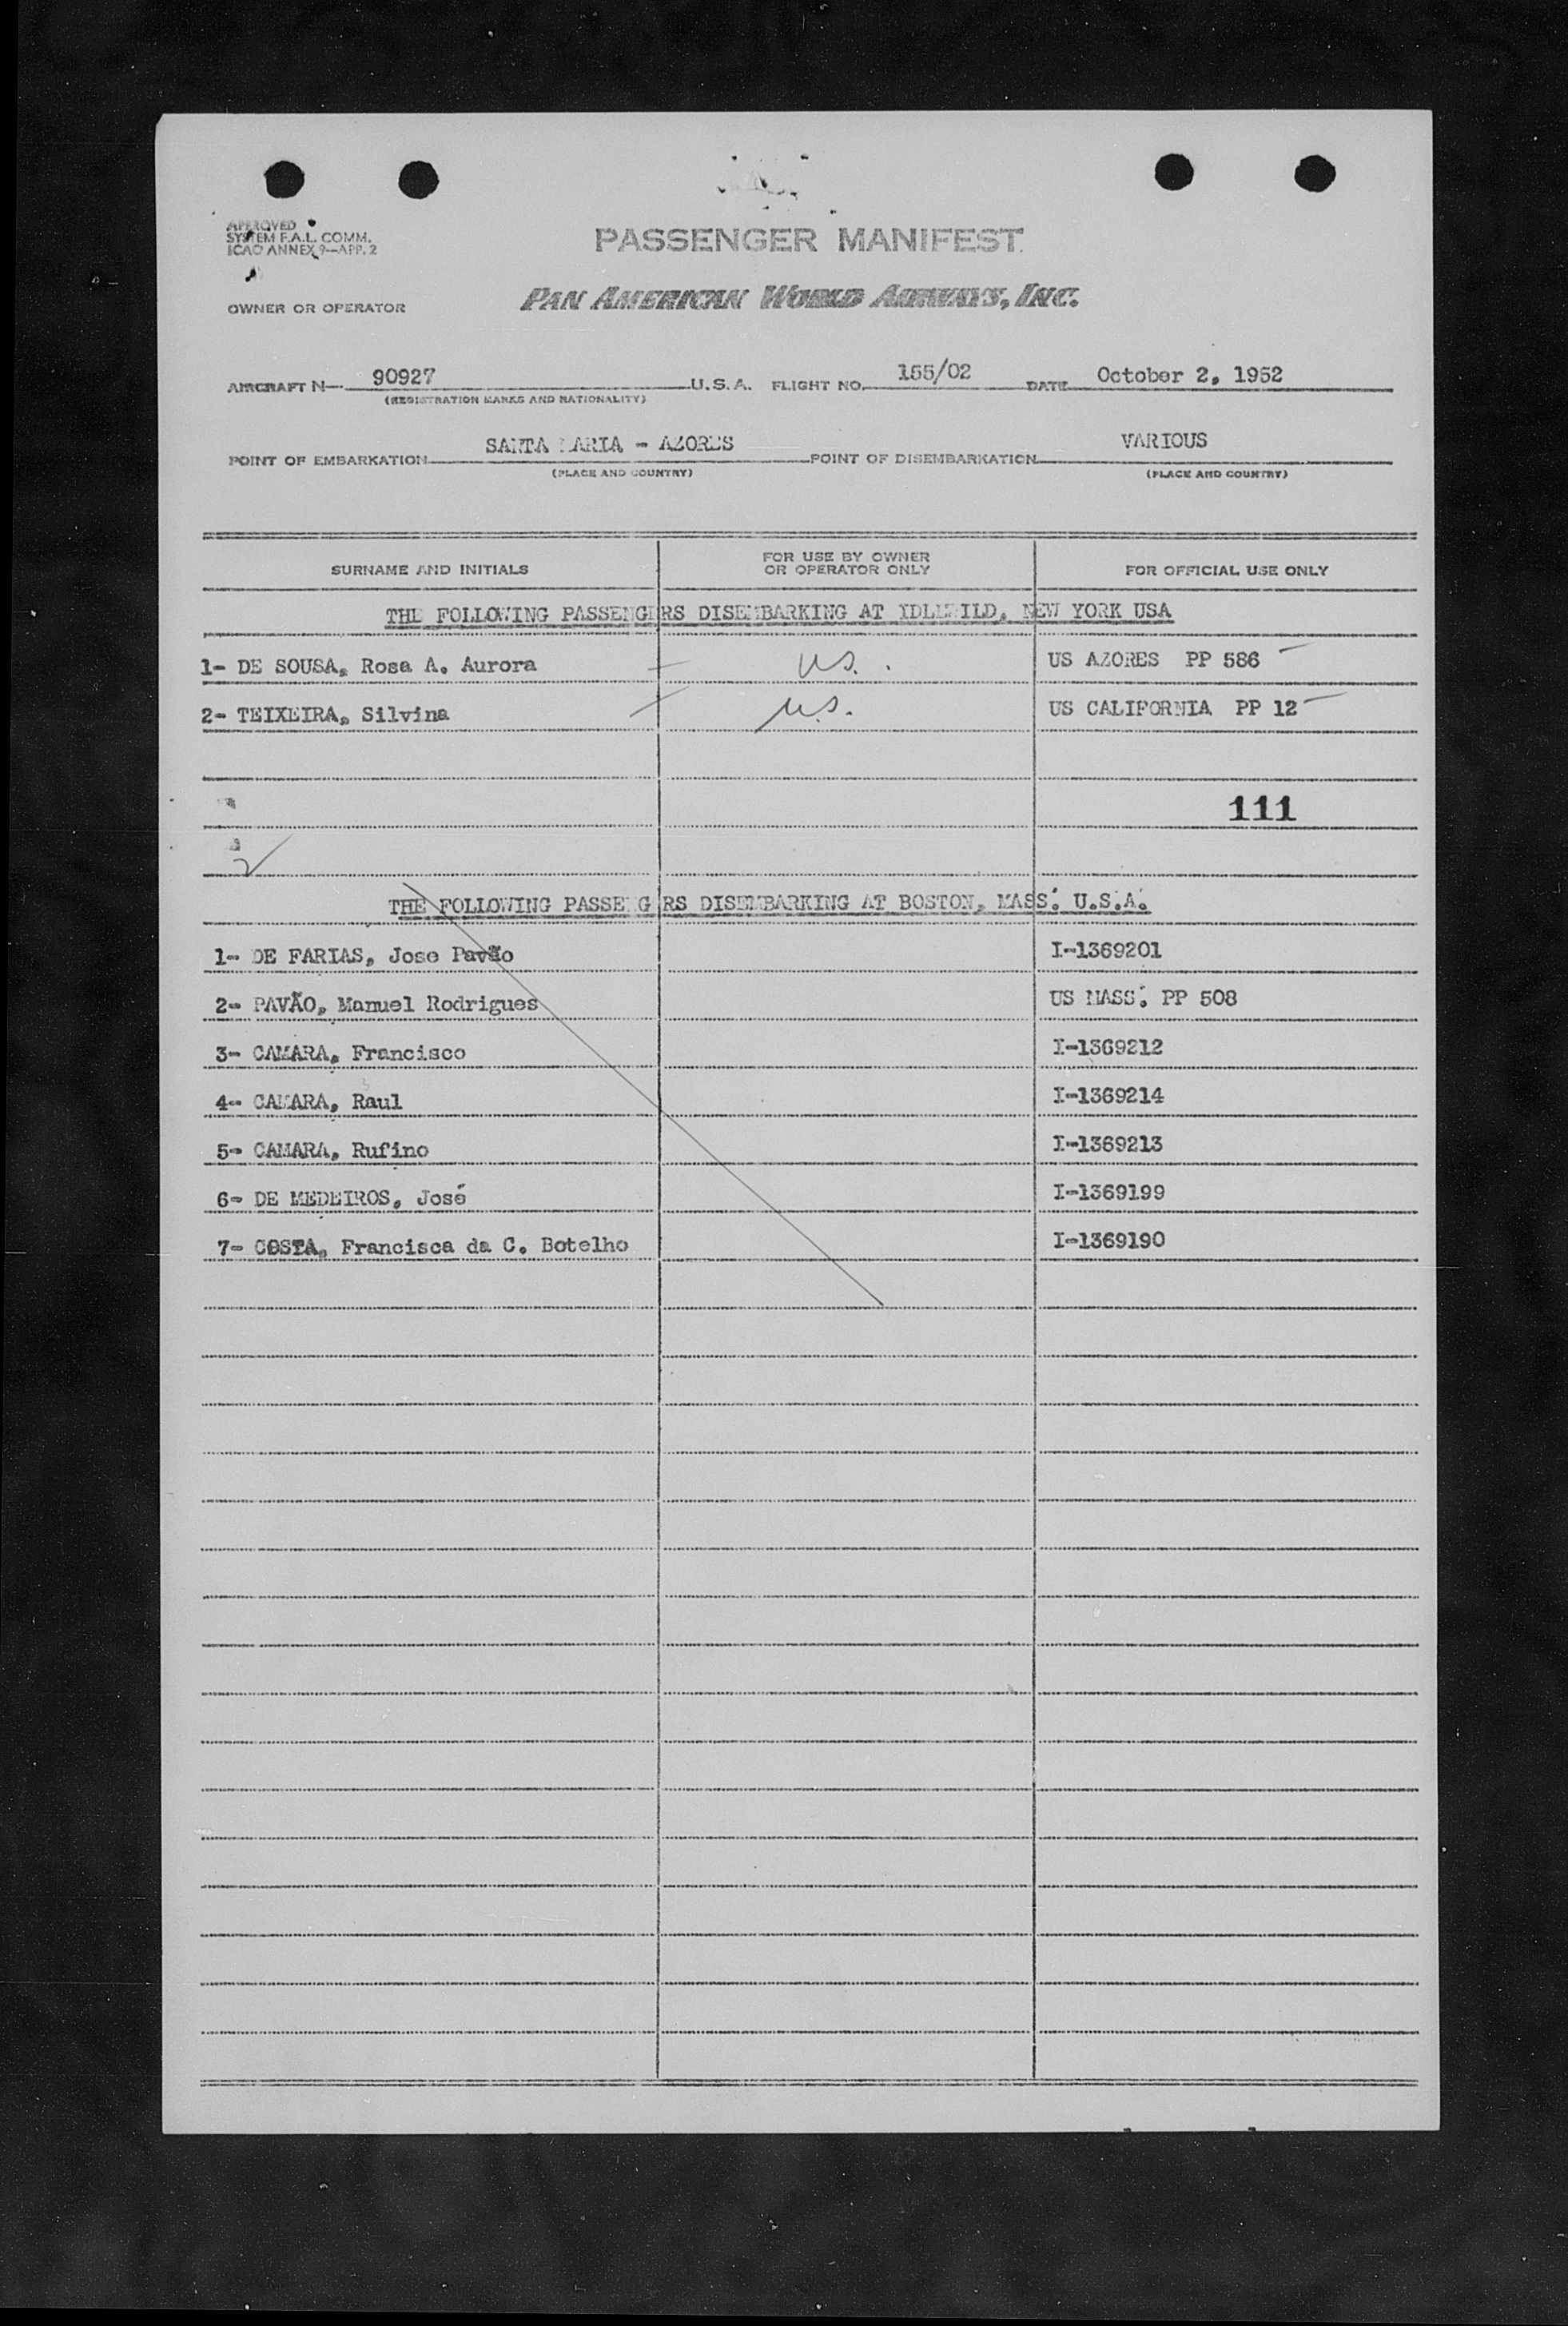 APPROVED
SYSTEM F.A.L. COMM.
ICAO ANNEX 9—APP. 2
PASSENGER MANIFEST
OWNER OR OPERATOR
PAN AMERICAN WORLD AIRWAYS, INC.
AIRCRAFT N— 90927 U.S.A. FLIGHT NO. 155/02 DATE October 2, 1952
(REGISTRATION MARKS AND NATIONALITY)
POINT OF EMBARKATION SANTA MARIA - AZORES POINT OF DISEMBARKATION VARIOUS
(PLACE AND COUNTRY) (PLACE AND COUNTRY)
SURNAME AND INITIALS FOR USE BY OWNER OR OPERATOR ONLY FOR OFFICIAL USE ONLY
THE FOLLOWING PASSENGERS DISEMBARKING AT IDLEWILD, NEW YORK USA
1- DE SOUSA, Rosa A. Aurora U.S. US AZORES PP 586
2- TEIXEIRA, Silvina U.S. US CALIFORNIA PP 12
111
2
THE FOLLOWING PASSENGERS DISEMBARKING AT BOSTON, MASS. U.S.A.
1- DE FARIAS, Jose Pavão I-1369201
2- PAVÃO, Manuel Rodrigues US MASS. PP 508
3- CAMARA, Francisco I-1369212
4- CAMARA, Raul I-1369214
5- CAMARA, Rufino I-1369213
6- DE MEDEIROS, José I-1369199
7- COSTA, Francisca da C. Botelho I-1369190